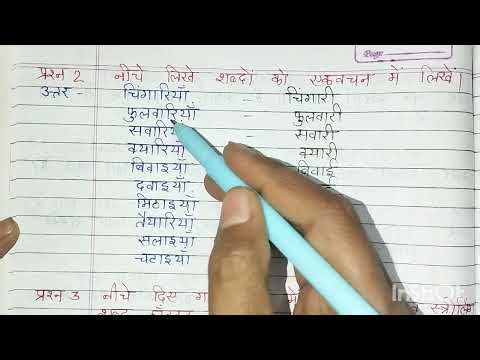 प्रश्न 2 नीचे लिखे शब्दों को एकवचन में लिखें।
उत्तर - चिंगारियाँ - चिंगारी
फुलवारियाँ - फुलवारी
सवारियाँ - सवारी
क्यारियाँ क्यारी
बिवाइयाँ बिवाई
दवाइयाँ
मिठाइयाँ
तैयारियाँ
सलाइयाँ
चटाइयाँ
प्रश्न 3 नीचे दिए